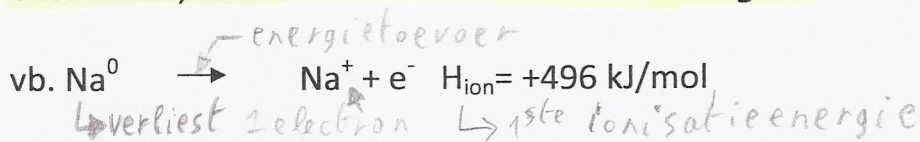 energietoevoer
vb. Na⁰ → Na⁺ + e⁻ H_ion = +496 kJ/mol
↳ verliest 1 electron ↳ 1ste ionisatieenergie